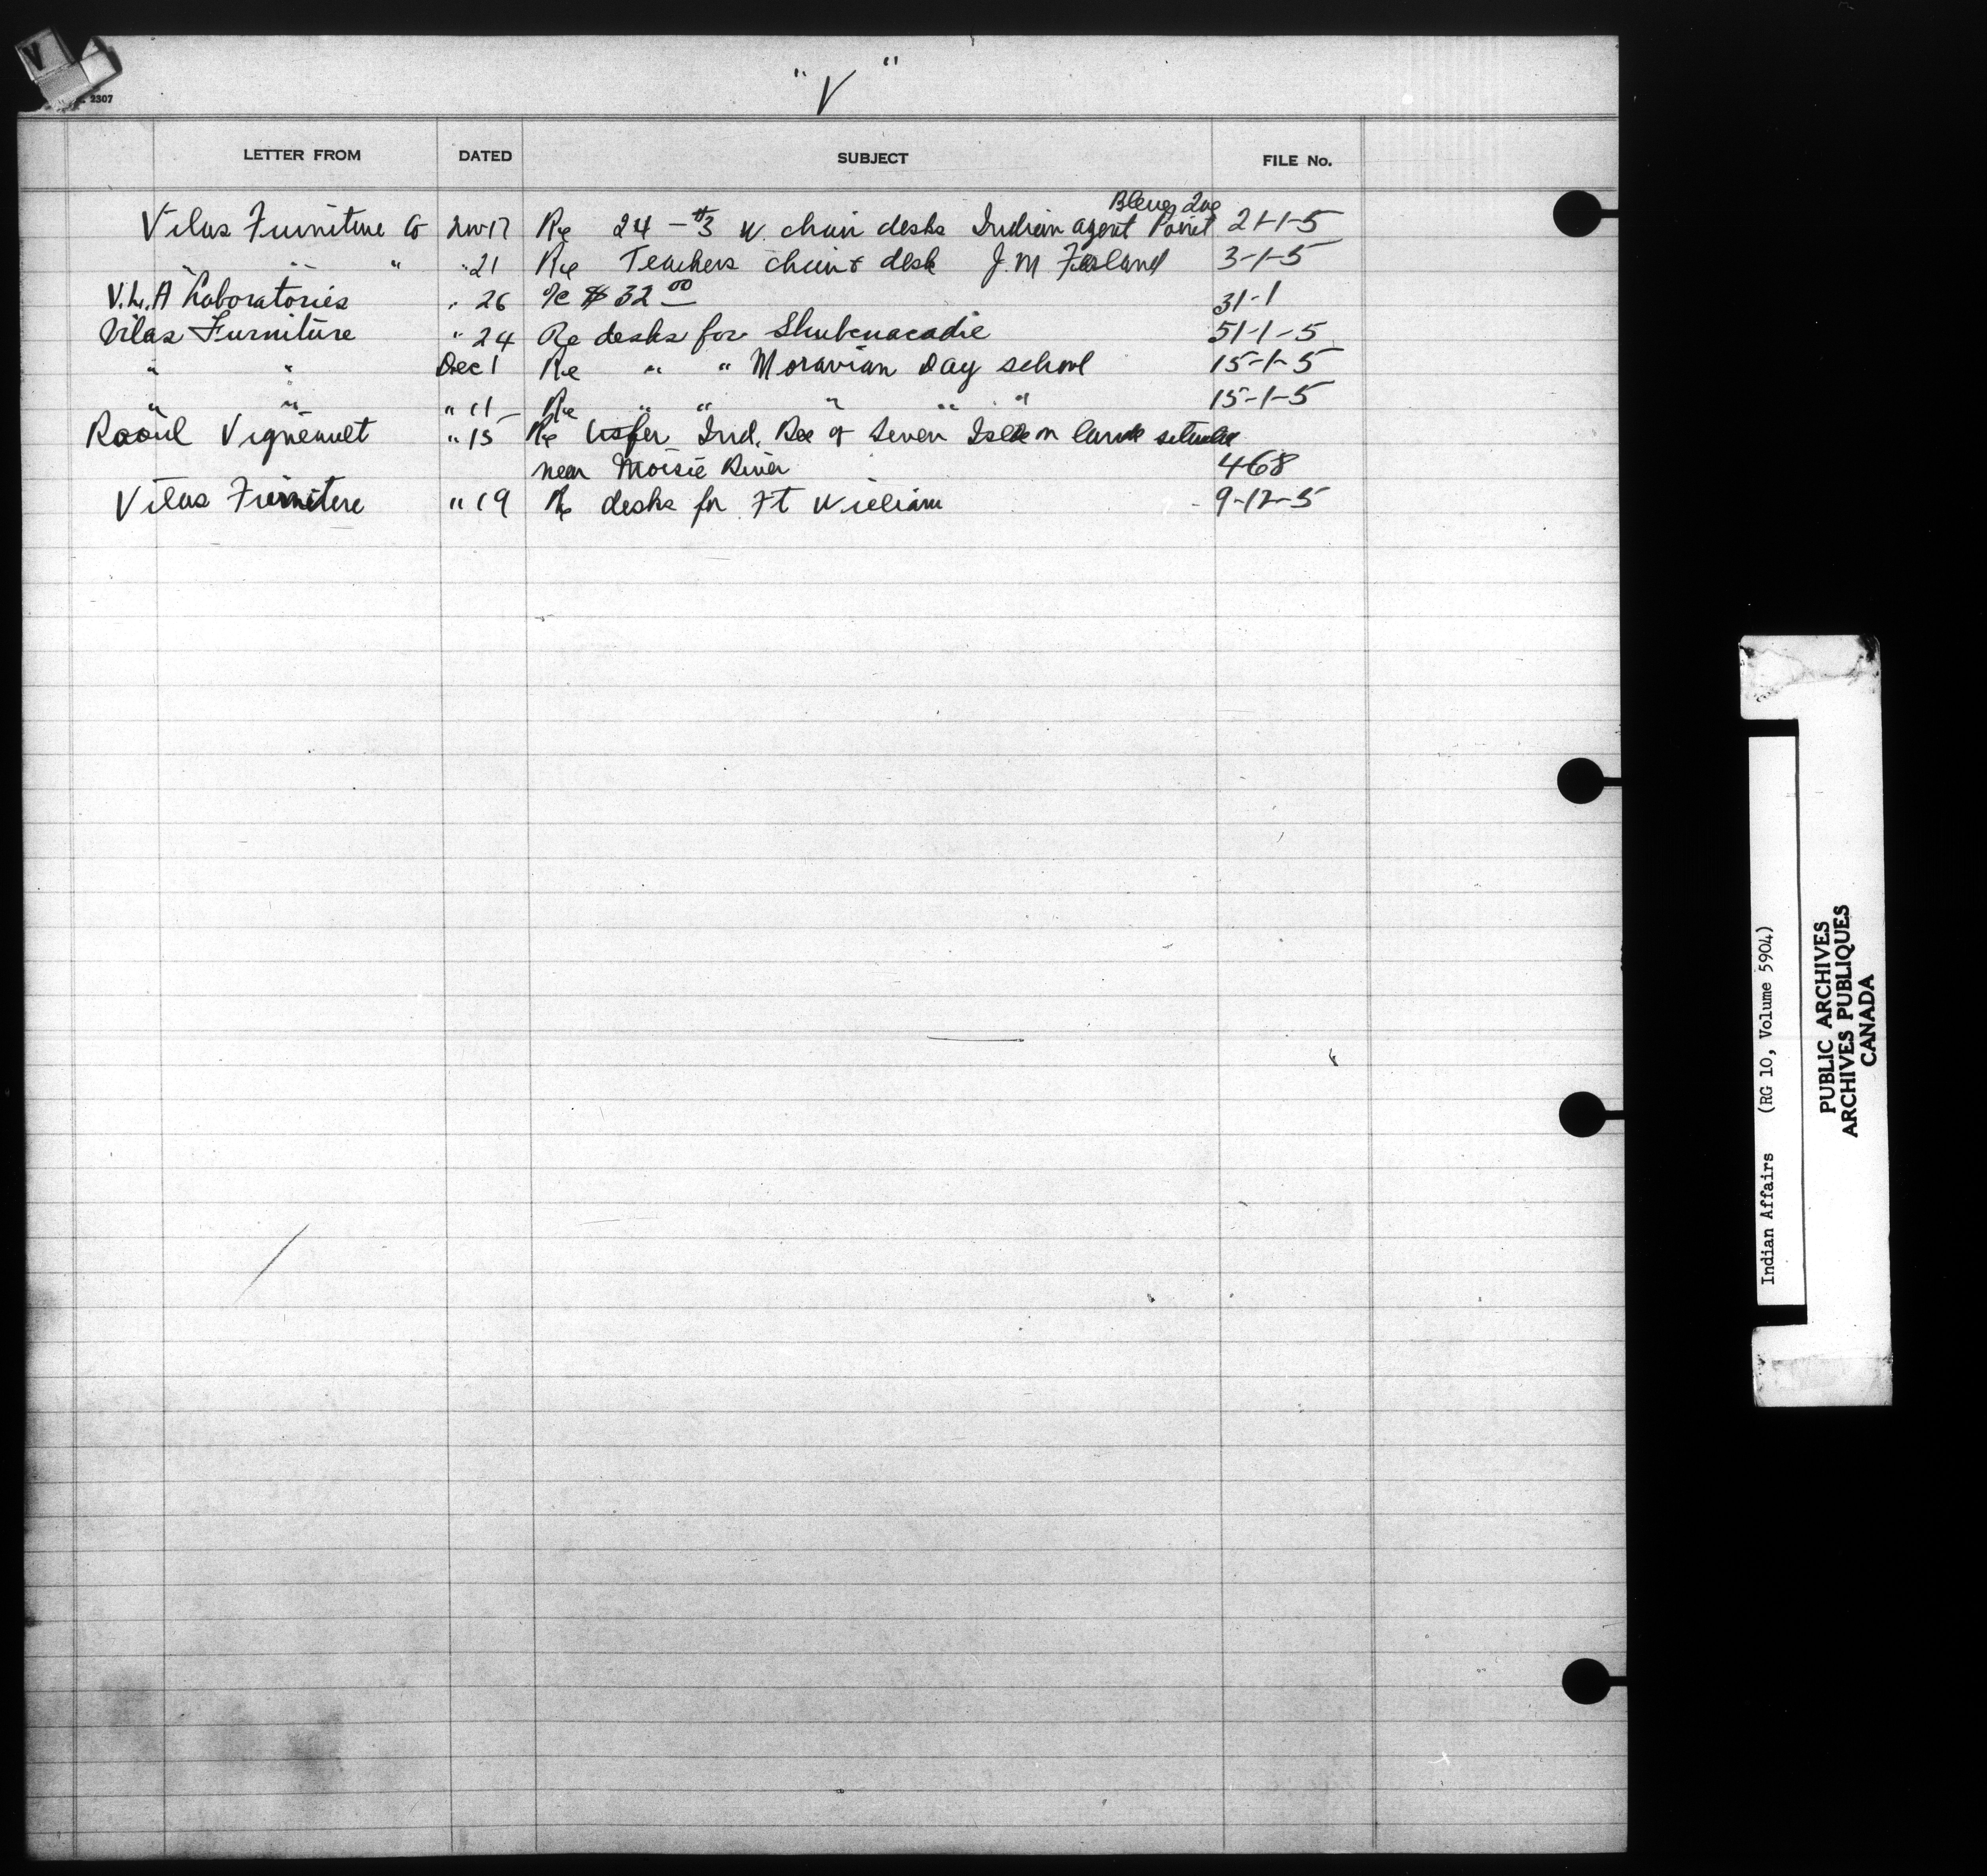 V
2307
" V "
LETTER FROM DATED SUBJECT FILE No.
Bleue Que
Vilas Furniture Co Nov 17 Re 24 - #3 W. chair desks Indian agent Point 21-1-5
" " " " 21 Re Teachers chair & desk J. M 3-1-5
V. L. A Laboratories " 26 a/c $ 32 00 31-1
Vilas Furniture " 24 Re desks for Shubenacadie 51-1-5
" " Dec 1 Re " " Moravian Day school 15-1-5
" " " 11 Re " " " " " 15-1-5
Raoul Vigneault " 15 Re Ind. Res of Seven Isles on lands situate
near Moisie River 468
Vilas Furniture " 19 Re desks for Ft William 9-12-5
Indian Affairs (RG 10, Volume 5904)
PUBLIC ARCHIVES
ARCHIVES PUBLIQUES
CANADA